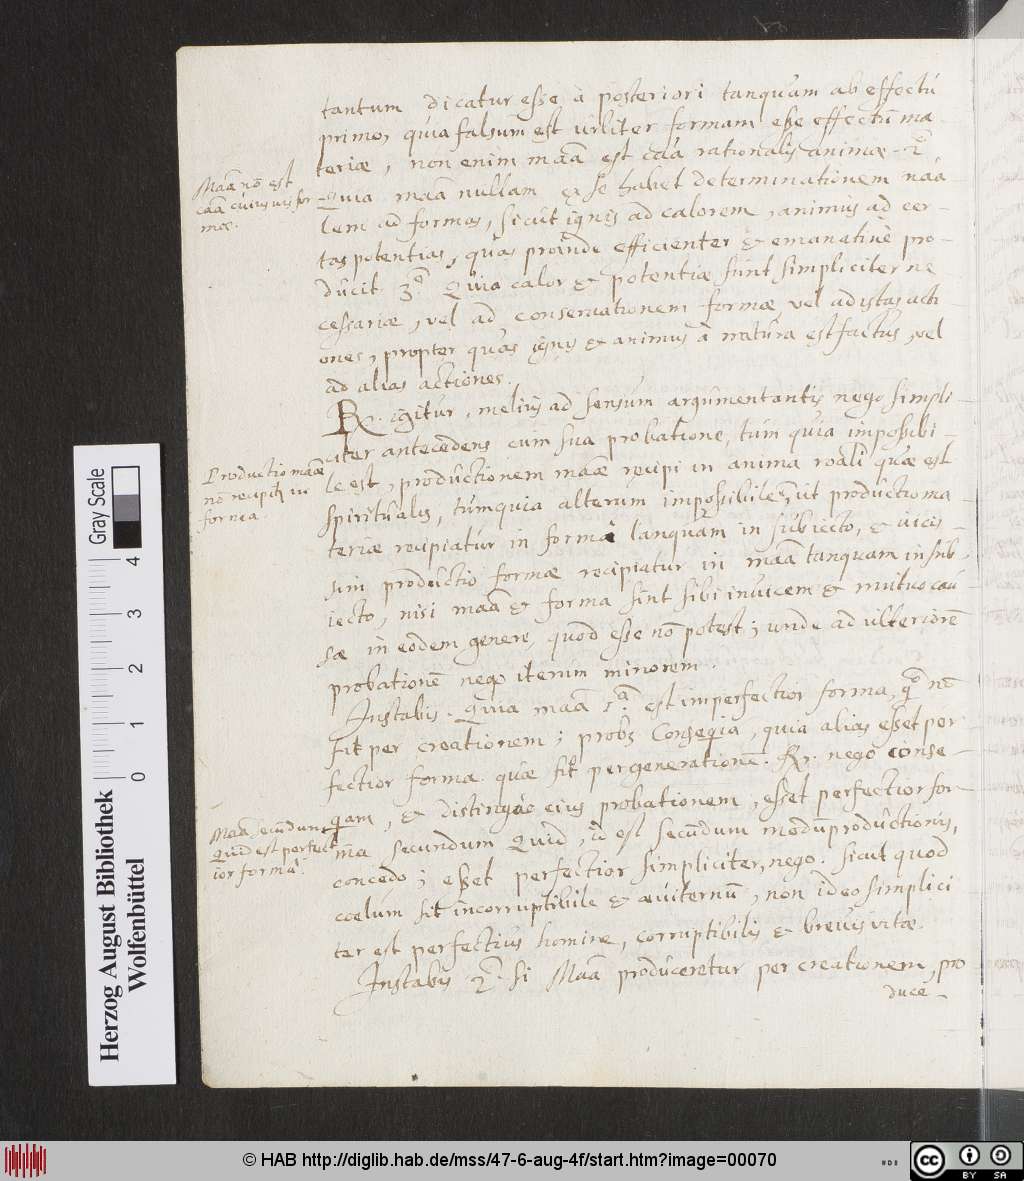 tantum dicatur esse à posteriori tanquam ab effectu
primo, quia falsum est vrliter formam esse effectum ma-
teriæ, non enim maã est caã rationalis animæ. 2º
Quia maã nullam ex se habet determinationem nãa
lem ad formas, sicut ignis ad calorem, animus ad cer-
tas potentias, quas proinde efficienter & emanatiuè pro-
ducit. 3º Quia calor & potentiæ sunt simpliciter ne
cessariæ, vel ad conseruationem formæ, vel ad istas acti
ones, propter quas ignis & animus à natura est factus, vel
ad alias actiones.
Rx. igitur, melius ad sensum argumentantis nego simpli-
citer antecedens cum sua probatione, tum quia impossibi-
le est, productionem maæ recipi in anima roali quæ est
spiritualis, tumquia alterum impossibile, ut productio ma
teriæ recipiatur in forma tanquam in subiecto, & vicis-
sim productio formæ recipiatur in maã tanquam in sub-
iecto, nisi maã & forma sint sibi inuicem & mutuo cau-
sæ in eodem genere, quod esse nõ potest; unde ad ulteriorẽ
probationẽ neqo iterum minorem.
Instabis. Quia maã 1ª est imperfectior forma, qº nõ
fit per creationem; probz Conseqia, quia alias esset per
fectior forma quæ fit per generationẽ. Rx. nego conse-
qam, & distinguo eius probationem, esset perfectior for
ma secundum Quid, i. est secundum modũ productionis,
concedo; esset perfectior simpliciter, nego. sicut quod
cœlum sit incorruptibile & æuiternũ, non ideo simplici
ter est perfectius homine, corruptibilis & breuis vitæ.
Instabis 2º. si Maã produceretur per creationem, pro
duce-
Maã nõ est
caã cuiusuis for
mæ.
Productio maæ
nõ recipitur in
forma.
Maã secundum
Quid est perfect
ior forma.
Herzog August Bibliothek
Wolfenbüttel
0 1 2 3 4
Gray Scale
© HAB http://diglib.hab.de/mss/47-6-aug-4f/start.htm?image=00070
cc BY SA